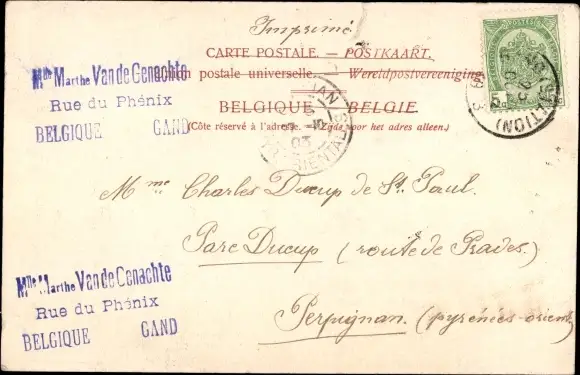 Imprimé
CARTE POSTALE. — POSTKAART.
Union postale universelle. — Wereldpostvereeniging
BELGIQUE — BELGIE.
(Côté réservé à l'adresse. — Zijde voor het adres alleen.)
Mlle Marthe Van de Genachte
Rue du Phénix
BELGIQUE GAND
Mme Charles Ducup de St. Paul.
Parc Ducup (route de Prades).
Perpignan. (pyrénées-orient
Mlle Marthe Van de Genachte
Rue du Phénix
BELGIQUE GAND